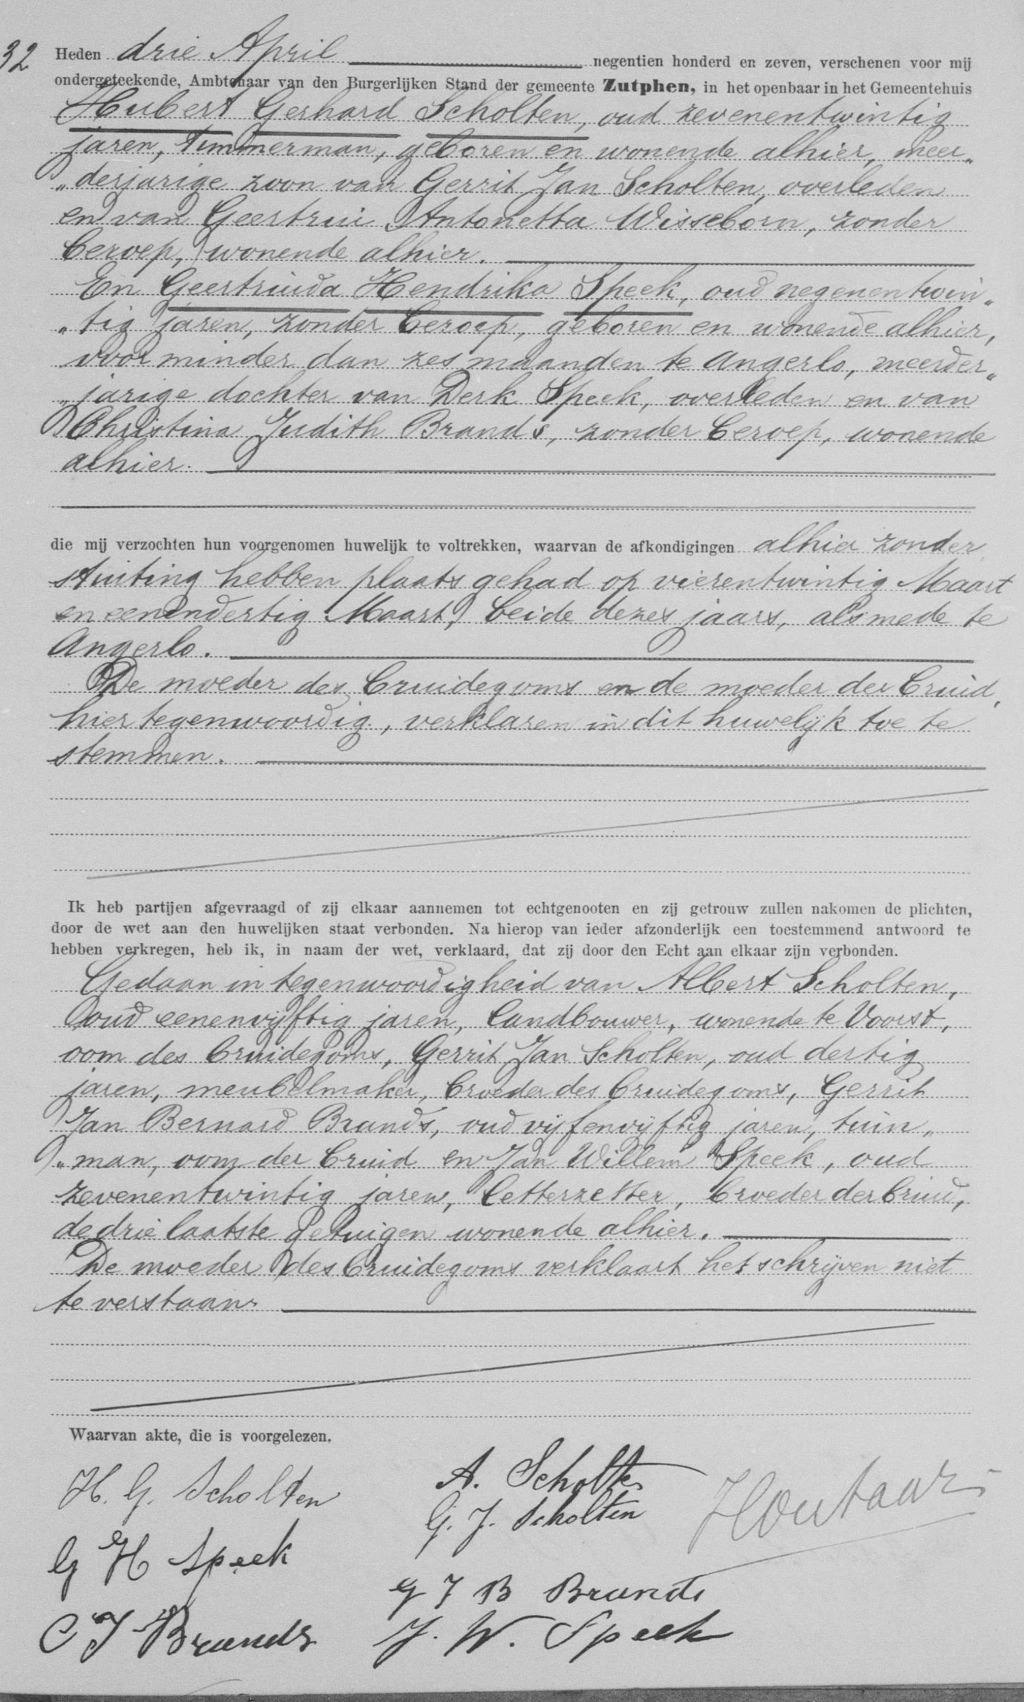 32 Heden drie April negentien honderd en zeven, verschenen voor mij
ondergeteekende, Ambtenaar van den Burgerlijken Stand der gemeente Zutphen, in het openbaar in het Gemeentehuis
Hubert Gerhard Scholten, oud zevenentwintig
jaren, timmerman, geboren en wonende alhier, meer„
„derjarige zoon van Gerrit Jan Scholten, overleden
en van Geertrui Antonetta Wisseborn, zonder
beroep, wonende alhier.
En Geertruida Hendrika Speek, oud negenentwin„
„tig jaren, zonder beroep, geboren en wonende alhier,
voor minder dan zes maanden te Angerlo, meerder„
„jarige dochter van Derk Speek, overleden en van
Christina Judith Brands, zonder beroep, wonende
alhier.
die mij verzochten hun voorgenomen huwelijk te voltrekken, waarvan de afkondigingen alhier zonder
stuiting hebben plaats gehad op vierentwintig Maart
en eenendertig Maart, beide dezes jaars, alsmede te
Angerlo.
De moeder des bruidegoms en de moeder der bruid,
hier tegenwoordig, verklaren in dit huwelijk toe te
stemmen.
Ik heb partijen afgevraagd of zij elkaar aannemen tot echtgenooten en zij getrouw zullen nakomen de plichten,
door de wet aan den huwelijken staat verbonden. Na hierop van ieder afzonderlijk een toestemmend antwoord te
hebben verkregen, heb ik, in naam der wet, verklaard, dat zij door den Echt aan elkaar zijn verbonden.
Gedaan in tegenwoordigheid van Albert Scholten,
oud eenenvijftig jaren, landbouwer, wonende te Voorst,
oom des bruidegoms, Gerrit Jan Scholten, oud dertig
jaren, meubelmaker, broeder des bruidegoms, Gerrit
Jan Bernard Brands, oud vijfenvijftig jaren, tuin„
„man, oom der bruid en Jan Willem Speek, oud
zevenentwintig jaren, letterzetter, broeder der bruid,
de drie laatste getuigen wonende alhier.
De moeder des bruidegoms verklaart het schrijven niet
te verstaan.
Waarvan akte, die is voorgelezen.
H. G. Scholten
A. Scholten
G. J. Scholten
G H Speek
G J B Brands
C J Brands
J. W. Speek